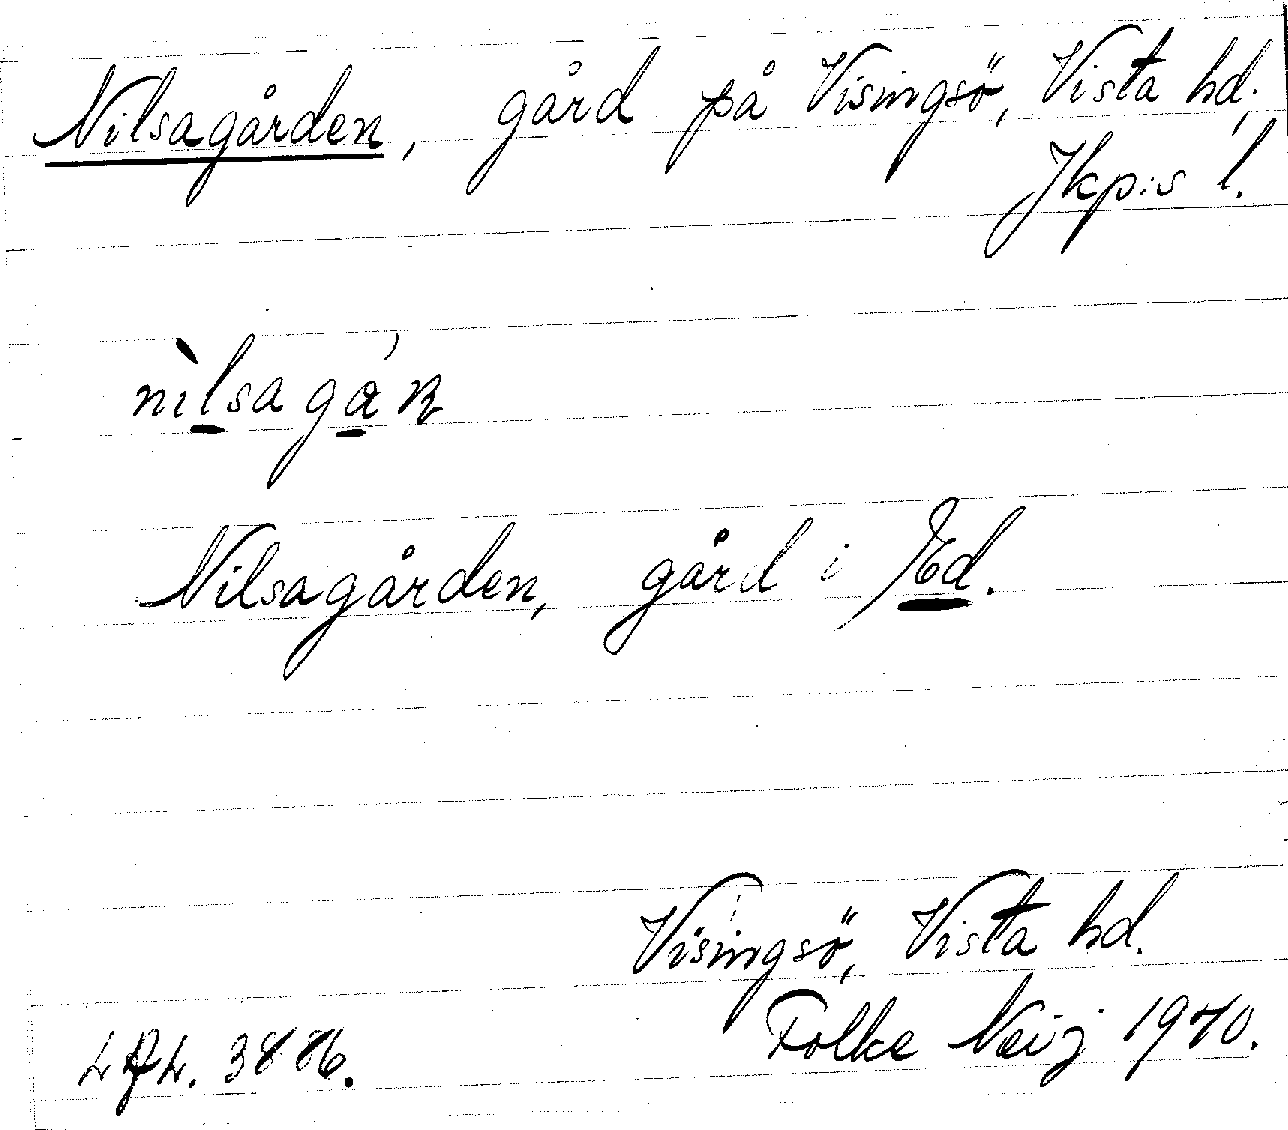 Nilsagården, gård på Visingsö, Vista hd,
Jkp:s l.
Nilsagården, gård i Ed.
Visingsö, Vista hd.
Folke Neij 1940.